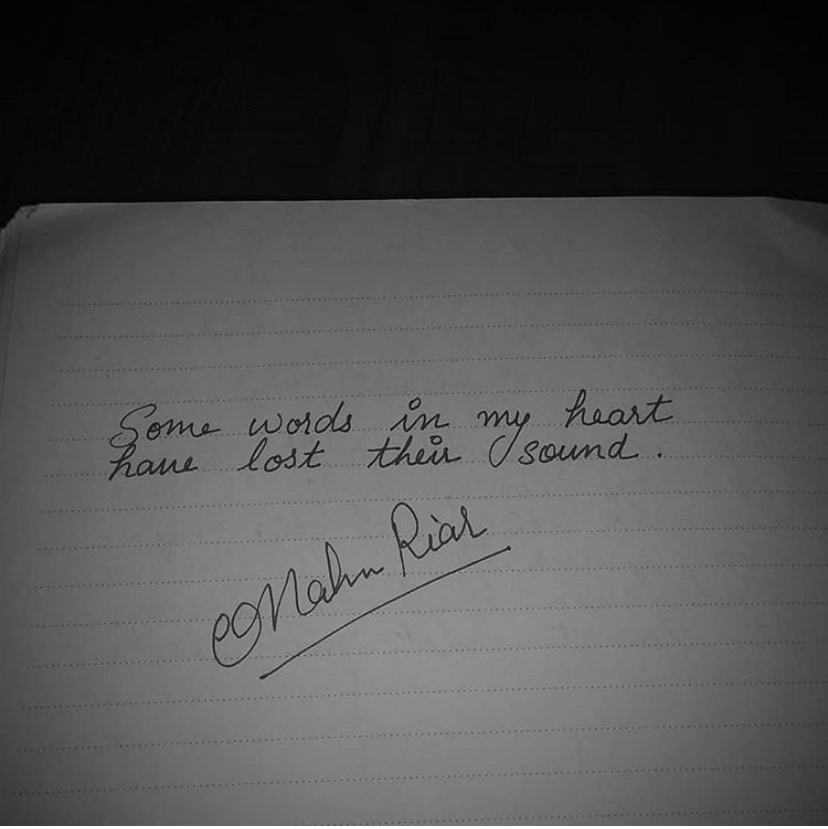 Some words in my heart
have lost their sound.
Riar